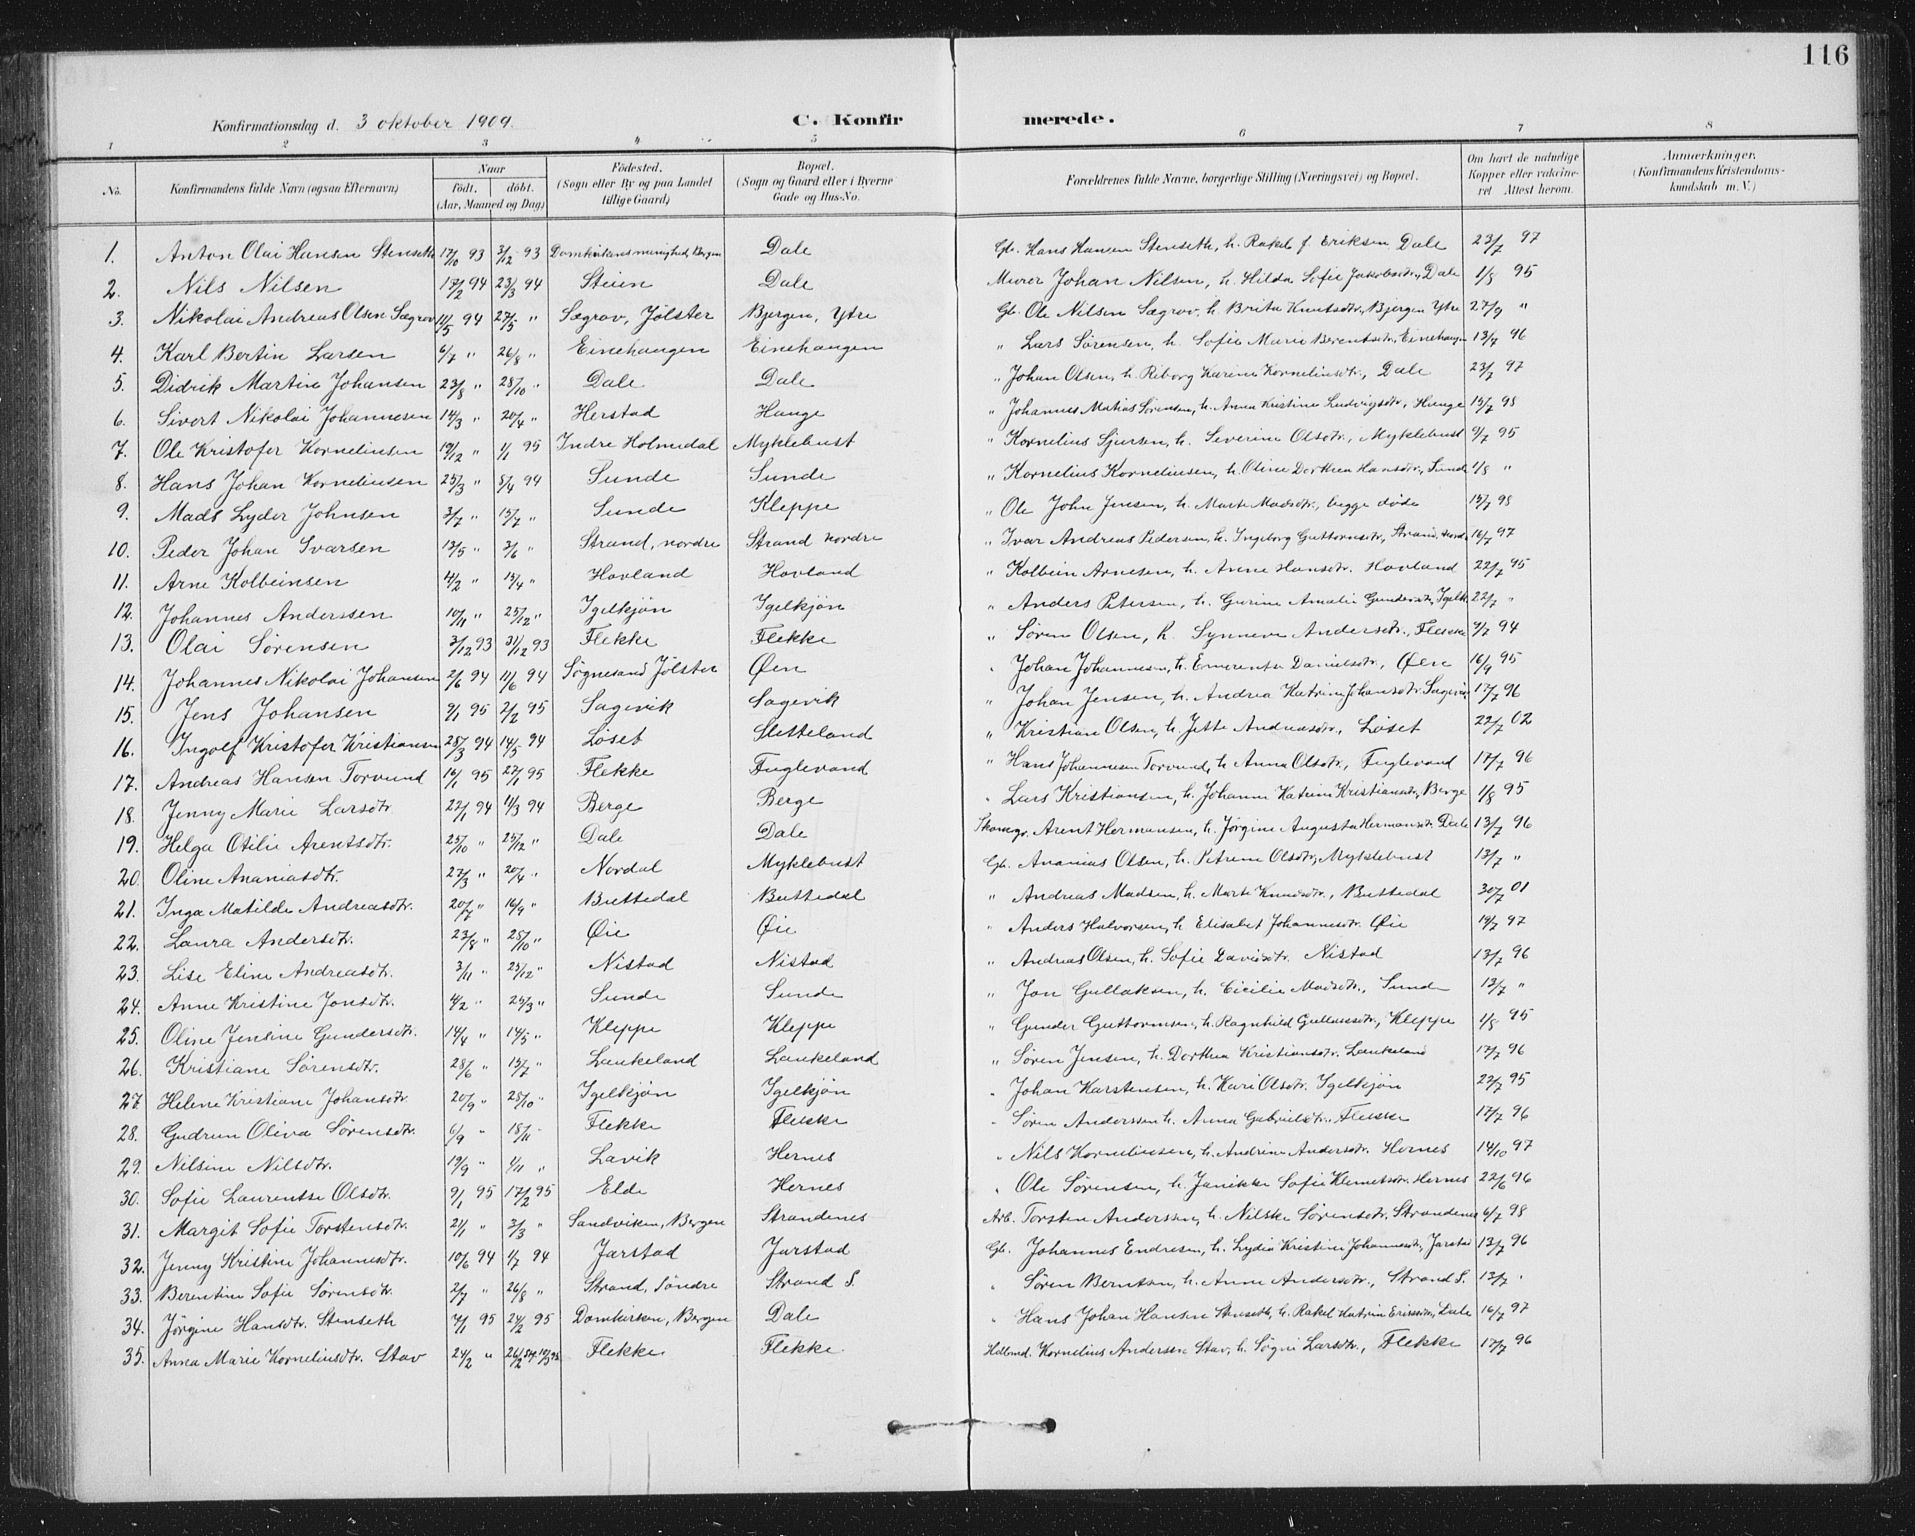 116
Konfirmationsdag d. 3 oktober 1909. C. Konfirmerede.
1 2 3 4 5 6 7 8
No. Konfirmandens fulde Navn (ogsaa Efternavn) Naar født. døbt. (Aar, Maaned og Dag) Fødested. (Sogn eller By og paa Landet tillige Gaard) Bopæl. (Sogn og Gaard eller i Byerne Gade og Hus-No. Forældrenes fulde Navne, borgerlige Stilling (Næringsvei) og Bopæl. Om havt de naturlige Kopper eller vaccineret Attest herom. Anmærkninger. (Konfirmandens Kristendomskundskab m. V.)
1. Anton Olai Hansen Stenseth 17/10 93 3/12 93 Domkirkens menighed, Bergen Dale Gb. Hans Hansen Stenseth, h. Rakel f. Eriksen Dale 23/7 97
2. Nils Nilsen 17/2 94 23/3 94 Steien Dale Murer Johan Nilsen, h. Hilda Sofie Jakobsdtr, Dale 1/8 95
3. Nikolai Andreas Olsen Sægrov 11/5 94 27/5 " Sægrov, Jølster Bjergen, Ytre Gb. Ole Nilsen Sægrov, h. Brita Knutsdtr, Bjergen Ytre 27/9 "
4. Karl Bertin Larsen 6/7 " 26/8 " Einehaugen Einehaugen " Lars Sørensen, h. Sofie Marie Berentsdtr, Einehaugen 13/7 96
5. Didrik Martin Johansen 23/8 " 28/10 " Dale Dale " Johan Olsen, h. Riborg Karine Kornelinsdtr, Dale 23/7 97
6. Sivert Nikolai Johannesen 14/3 " 20/4 " Herstad Hauge " Johannes Matias Sørensen, h. Anna Kristine Ludvigsdtr, Hauge 15/7 98
7. Ole Kristofer Kornelinsen 19/12 " 1/1 95 Indre Holmedal Myklebust " Kornelius Sjursen, h. Severine Olsdtr, Myklebust 9/7 95
8. Hans Johan Kornelinsen 25/3 " 8/4 94 Sunde Sunde " Kornelius Kornelinsen, h. Oline Dorthea Hansdtr, Sunde 1/8 "
9. Mads Lyder Johnsen 3/7 " 15/7 " Sunde Kleppe " Ole John Jensen, h. Marte Madsdtr, begge døde 15/7 98
10. Peder Johan Ivarsen 13/5 " 3/6 " Strand, nordre Strand nordre " Ivar Andreas Pedersen, h. Ingeborg Guttormsdtr, Strand, nord 16/7 97
11. Arne Kolbeinsen 4/2 " 15/4 " Hovland Hovland " Kolbein Arnesen, h. Anne Hansdtr. Hovland 22/7 95
12. Johannes Anderssen 10/11 " 25/12 " Igelkjøn Igelkjøn " Anders Petersen, h. Gurine Amalie Gundersdtr, Igelk 22/7 "
13. Olai Sørensen 3/12 93 31/12 93 Flekke Flekke " Søren Olsen, h. Synneve Andersdtr, Flekke 9/7 94
14. Johannes Nikolai Johansen 2/6 94 11/6 94 Søgnesand Jølster Øen " Johan Johannesen, h. Emerentse Danielsdtr, Øen 16/9 95
15. Jens Johansen 9/1 95 2/2 95 Sagevik Sagevik " Johan Jensen, h. Andrea Katrine Johansdtr Sagevik 17/7 96
16. Ingolf Kristofer Kristiansen 28/3 94 14/5 94 Løset Sletteland " Kristian Olsen, h. Jette Andreasdtr, Løset 22/7 02
17. Andreas Hansen Torvund 16/1 95 27/1 95 Flekke Fuglevand " Hans Johannesen Torvund, h. Anna Olsdtr, Fuglevand 17/7 96
18. Jenny Marie Larsdtr. 22/1 94 11/3 94 Berge Berge " Lars Kristiansen, h. Johanne Katrine Kristiansdtr, Berge 1/8 95
19. Helga Otilie Arentsdtr. 25/10 " 25/12 " Dale Dale Skomgr. Arent Hermansen, h. Jørgine Augusta Hermansdtr Dale 13/7 96
20. Oline Ananiasdtr. 27/3 " 20/4 " Nordal Myklebust Gb. Ananias Olsen, h. Petrine Olsdtr, Myklebust 13/7 "
21. Inga Matilde Andreasdtr. 20/7 " 16/9 " Buttedal Buttedal " Andreas Madsen, h. Marte Knudsdtr, Buttedal 30/7 01
22. Laura Andersdtr. 23/8 " 28/10 " Øie Øie " Anders Halvorsen, h. Elisabet Johannesdtr. Øie 14/7 97
23. Lise Eline Andreasdtr. 3/11 " 25/12 " Nistad Nistad " Andreas Olsen, h. Sofie Davidsdtr. Nistad 13/7 96
24. Anne Kristine Jonsdtr. 4/2 " 25/3 " Sunde Sunde " Jon Gullaksen, h. Cicilie Madsdtr, Sunde 13/7 "
25. Oline Jensine Gundersdtr. 14/4 " 14/5 " Kleppe Kleppe " Gunder Guttormsen, h. Ragnhild Gullaksdtr, Kleppe 1/8 95
26. Kristiane Sørensdtr. 28/6 " 15/7 " Laukeland Laukeland " Søren Jensen, h. Dorthea Kristiansdtr. Laukeland 17/7 96
27. Helene Kristiane Johansdtr. 20/9 " 28/10 " Igelkjøn Igelkjøn " Johan Karstensen, h. Kari Olsdtr. Igelkjøn 22/7 95
28. Gudrun Oliva Sørensdtr. 6/9 " 18/11 " Flekke Flekke " Søren Anderssen h. Anna Gabrielsdtr. Flekke 17/7 96
29. Nilsine Nilsdtr. 19/9 " 1/11 " Lavik Hernes " Nils Kornelinsen, h. Andrine Andersdtr. Hernes 14/10 97
30. Sofie Laurentse Olsdtr. 9/1 95 17/2 95 Elde Hernes " Ole Sørensen, h. Janikke Sofie Klemetsdtr. Hernes 22/6 96
31. Margit Sofie Torstensdtr. 21/1 " 3/3 " Sandviken, Bergen Strandenes Arb. Torsten Anderssen, h. Nilske Sørensdtr, Strandenes 6/7 98
32. Jenny Kristine Johannesdtr. 10/6 94 1/7 94 Jarstad Jarstad Gb. Johannes Endresen, h. Lydia Kristine Johannesdtr, Jarstad 13/7 96
33. Berentine Sofie Sørensdtr. 2/7 " 26/8 " Strand, Søndre Strand S. " Søren Berntsen, h. Anne Andersdtr, Strand S. 13/7 "
34. Jørgine Hansdtr. Stenseth 7/1 95 24/2 95 Domkirken, Bergen Dale " Hans Johan Hansen Stenseth, h. Rakel Katrine Eriksdtr, Dale 16/7 97
35. Anna Marie Kornelinsdtr. Stav 24/2 " 26/2 Flekke Flekke Kornelius Andersen Stav, h. Søgni Larsdtr, Flekke 17/7 96